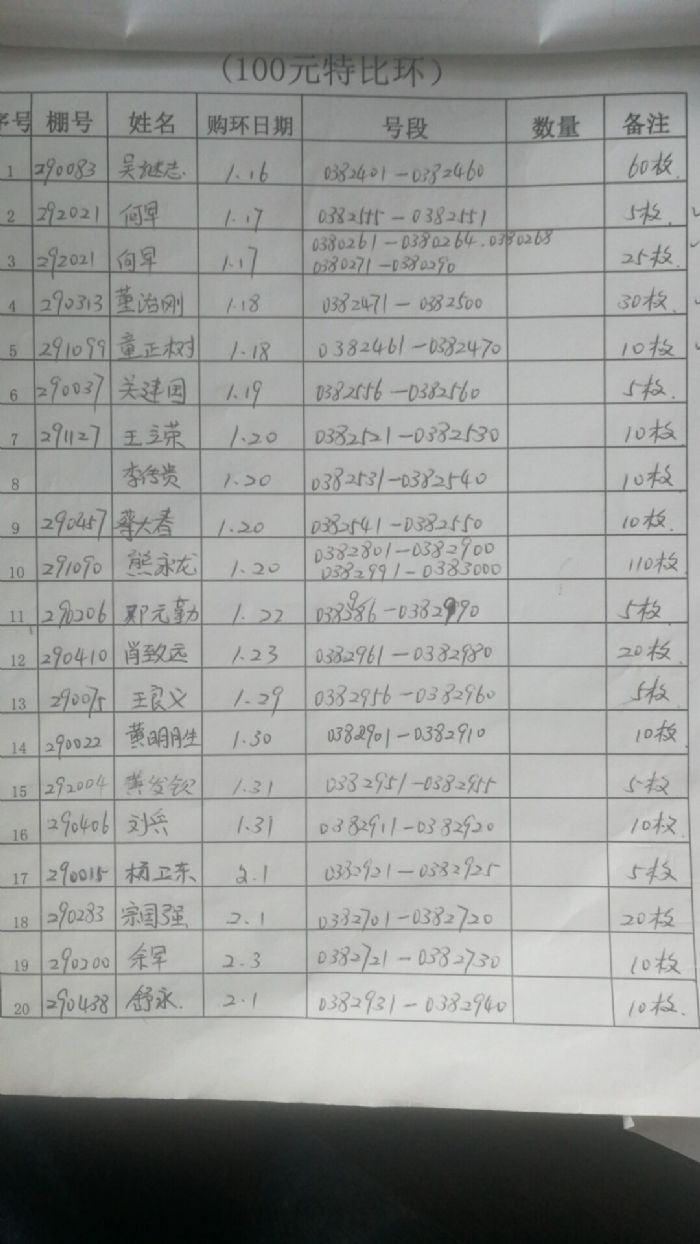 (100元特比环)
序号 棚号 姓名 购环日期 号段 数量 备注
1 290083 吴继志 1.16 0382401-0382460 60枚
2 292021 何军 1.17 0382555-0382551 5枚
3 292021 向军 1.17 0380261-0380264.0380268
0380271-0380290 25枚
4 290313 董治刚 1.18 0382471-0382500 30枚
5 291099 童正树 1.18 0382461-0382470 10枚
6 290037 关建国 1.19 0382556-0382560 5枚
7 291127 王立荣 1.20 0382521-0382530 10枚
8 李传贵 1.20 0382531-0382540 10枚
9 290457 蔡大春 1.20 0382541-0382550 10枚
10 291090 熊永龙 1.20 0382801-0382900
0382991-0383000 110枚
11 290206 邓元勤 1.22 -0382990 5枚
12 290410 肖致远 1.23 0382961-0382980 20枚
13 290075 王良义 1.29 0382956-0382960 5枚
14 290022 黄明胜 1.30 0382901-0382910 10枚
15 292004 黄发钦 1.31 0382951-0382955 5枚
16 290406 刘兵 1.31 0382911-0382920 10枚
17 290015 杨卫东 2.1 0382921-0382925 5枚
18 290283 宗国强 2.1 0382701-0382720 20枚
19 290200 余军 2.3 0382721-0382730 10枚
20 290438 舒永 2.1 0382931-0382940 10枚